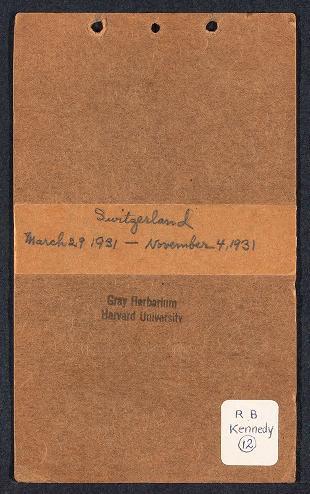 Switzerland
March 29 1931 — November 4, 1931
Gray Herbarium
Harvard University
R B
Kennedy
12